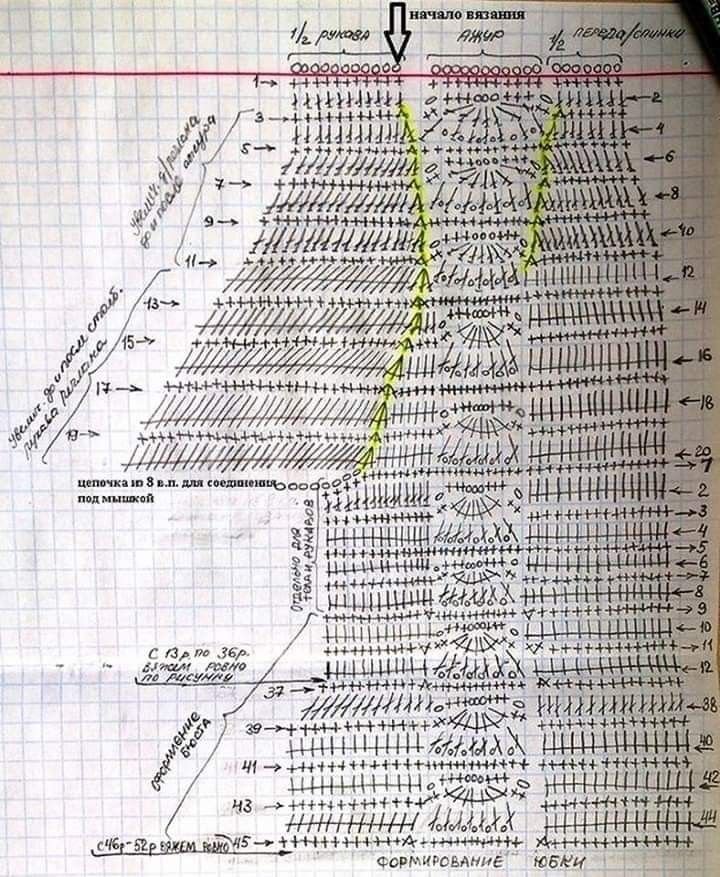 начало вязания
1/2 РУКАВА
АЖУР
1/2 ПЕРЕДА/СПИНКИ
1
2
3
4
5
6
7
8
9
10
11
12
13
14
15
16
17
18
19
20
увелич. д/реглана
до и после ажура
увелич. до и после столб.
рукава реглана
цепочка из 8 в.п. для соединения
под мышкой
1
2
3
4
5
6
7
8
9
10
11
12
Отдельно для
тела и рукавов
С 13р. по 36р.
вяжем ровно
по рисунку
37
38
39
40
41
42
43
44
оформление
бюста
с 46р-52р вяжем ровно
45
ФОРМИРОВАНИЕ ЮБКИ